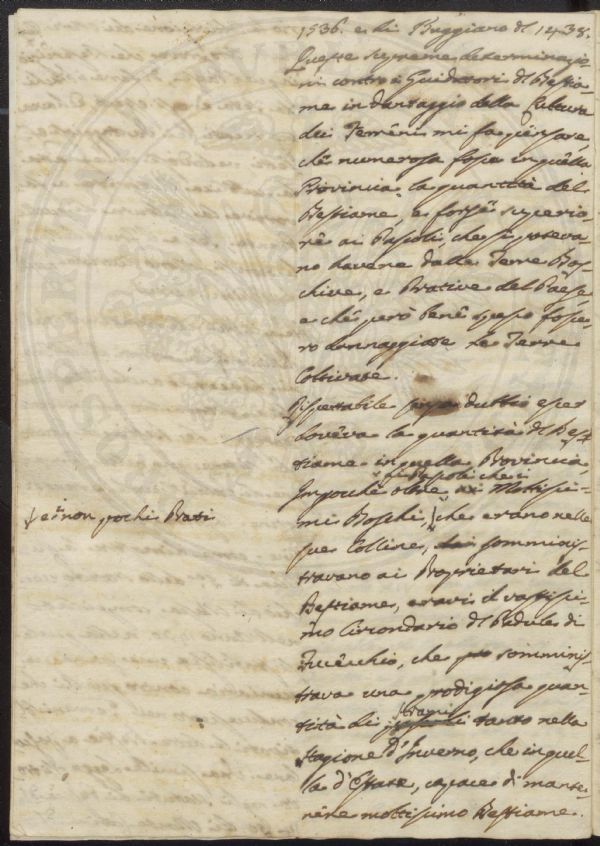 1536. e di Buggiano del 1438.
Queste supreme determinazio-
ni contro i Guidatori del Bestia-
me in vantaggio della Cultura
dei Terreni mi fa pensare,
chè numerosa fosse in quella
Provincia la quantità del
Bestiame, e forse superio-
re ai Pascoli, che si poteva-
no havere dalle Terre Bos-
chive, e Prative del Paese
e che però bene spesso fosse-
ro dannaggiate le Terre
Coltivate.
Rispettabile senza dubbio esser
doveva la quantità del Bes-
tiame in quella Provincia,
ai Pascoli che i
Imperochè oltre Moltissi-
mi Boschi, } che erano nelle
} e non pochi Prati
sue Colline, somminis-
travano ai Proprietari del
Bestiame, eravi il vastissi-
mo Circondario del Padule di
Fucecchio, che somminis-
trava una prodigiosa quan-
strami
tità di tanto nella
stagione d'Inverno, che in quel-
la d'Estate, capace di mante-
nere moltissimo Bestiame.